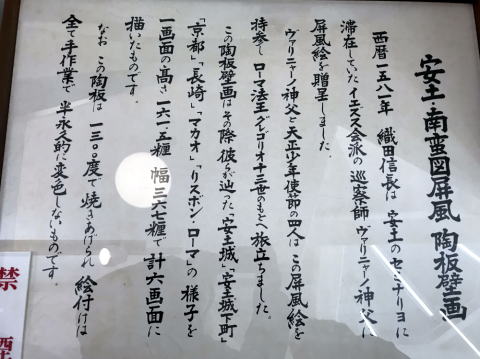 安土・南蛮図屏風 陶板壁画
西暦一五八一年 織田信長は 安土のセミナリヨに
滞在していたイエズス会派の 巡察師 ヴァリニャーノ神父に
屏風絵を贈呈しました。
ヴァリニャーノ神父と天正少年使節の四人は この屏風絵を
持参し ローマ法王グレゴリオ十三世のもとへ旅立ちました。
この陶板壁画はその際 彼らが辿った「安土城」「安土城下町」
「京都」「長崎」「マカオ」「リスボン・ローマ」の 様子を
一画面の高さ 一六一五粍 幅三六七糎で 計六画面に
描いたものです。
なお この陶板は 一三〇〇度で焼きあげられ 絵付けは
全て手作業で 半永久的に変色しないものです。
禁